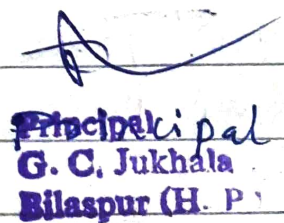 Principal cipal
G. C. Jukhala
Bilaspur (H. P